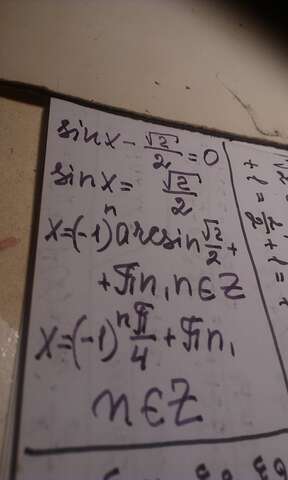 sin x - √2/2 = 0
sin x = √2/2
x = (-1)ⁿ arcsin √2/2 +
+ πn, n ∈ Z
x = (-1)ⁿ π/4 + πn,
n ∈ Z